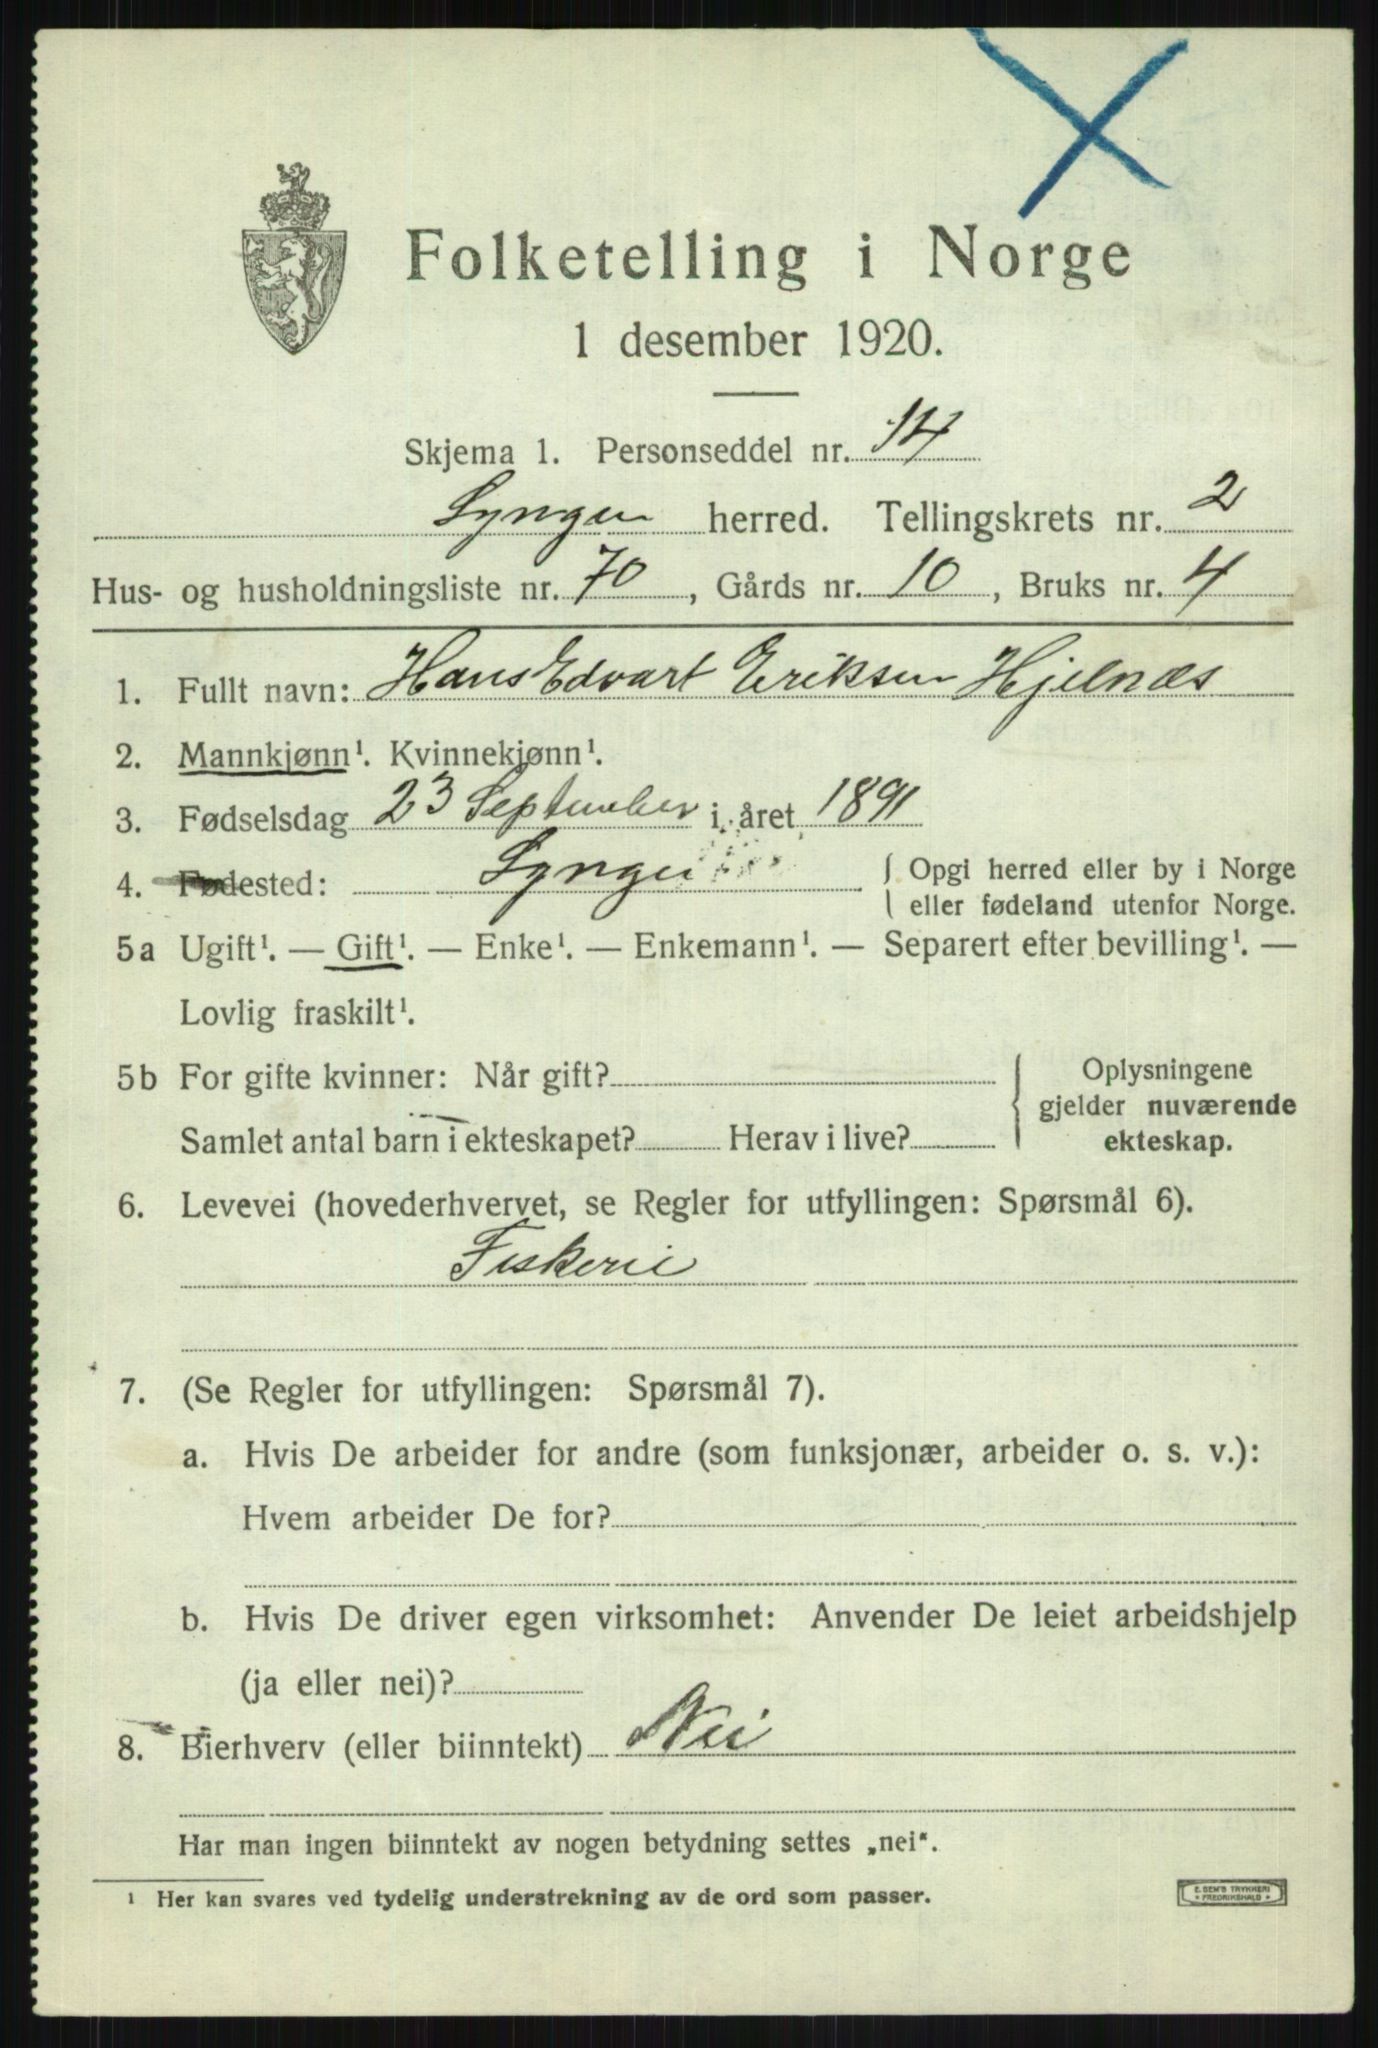 Folketelling i Norge
1 desember 1920.
Skjema 1. Personseddel nr. 14
Lyngen herred. Tellingskrets nr. 2
Hus- og husholdningsliste nr. 70, Gårds nr. 10, Bruks nr. 4
1. Fullt navn: Hans Edvart Eriksen Hjelnæs
2. Mannkjønn¹. Kvinnekjønn¹.
3. Fødselsdag 23 September i året 1891
4. Fødested: Lyngen { Opgi herred eller by i Norge
eller fødeland utenfor Norge.
5a Ugift¹. — Gift¹. — Enke¹. — Enkemann¹. — Separert efter bevilling¹. —
Lovlig fraskilt¹.
5b For gifte kvinner: Når gift? { Oplysningene
gjelder nuværende
Samlet antal barn i ekteskapet? Herav i live? ekteskap.
6. Levevei (hovederhvervet, se Regler for utfyllingen: Spørsmål 6).
Fiskerie
7. (Se Regler for utfyllingen: Spørsmål 7).
a. Hvis De arbeider for andre (som funksjonær, arbeider o. s. v.):
Hvem arbeider De for?
b. Hvis De driver egen virksomhet: Anvender De leiet arbeidshjelp
(ja eller nei)?
8. Bierhverv (eller biinntekt) Nei
Har man ingen biinntekt av nogen betydning settes „nei“.
¹ Her kan svares ved tydelig understrekning av de ord som passer.
E. SEM'S TRYKKERI
FREDRIKSHALD